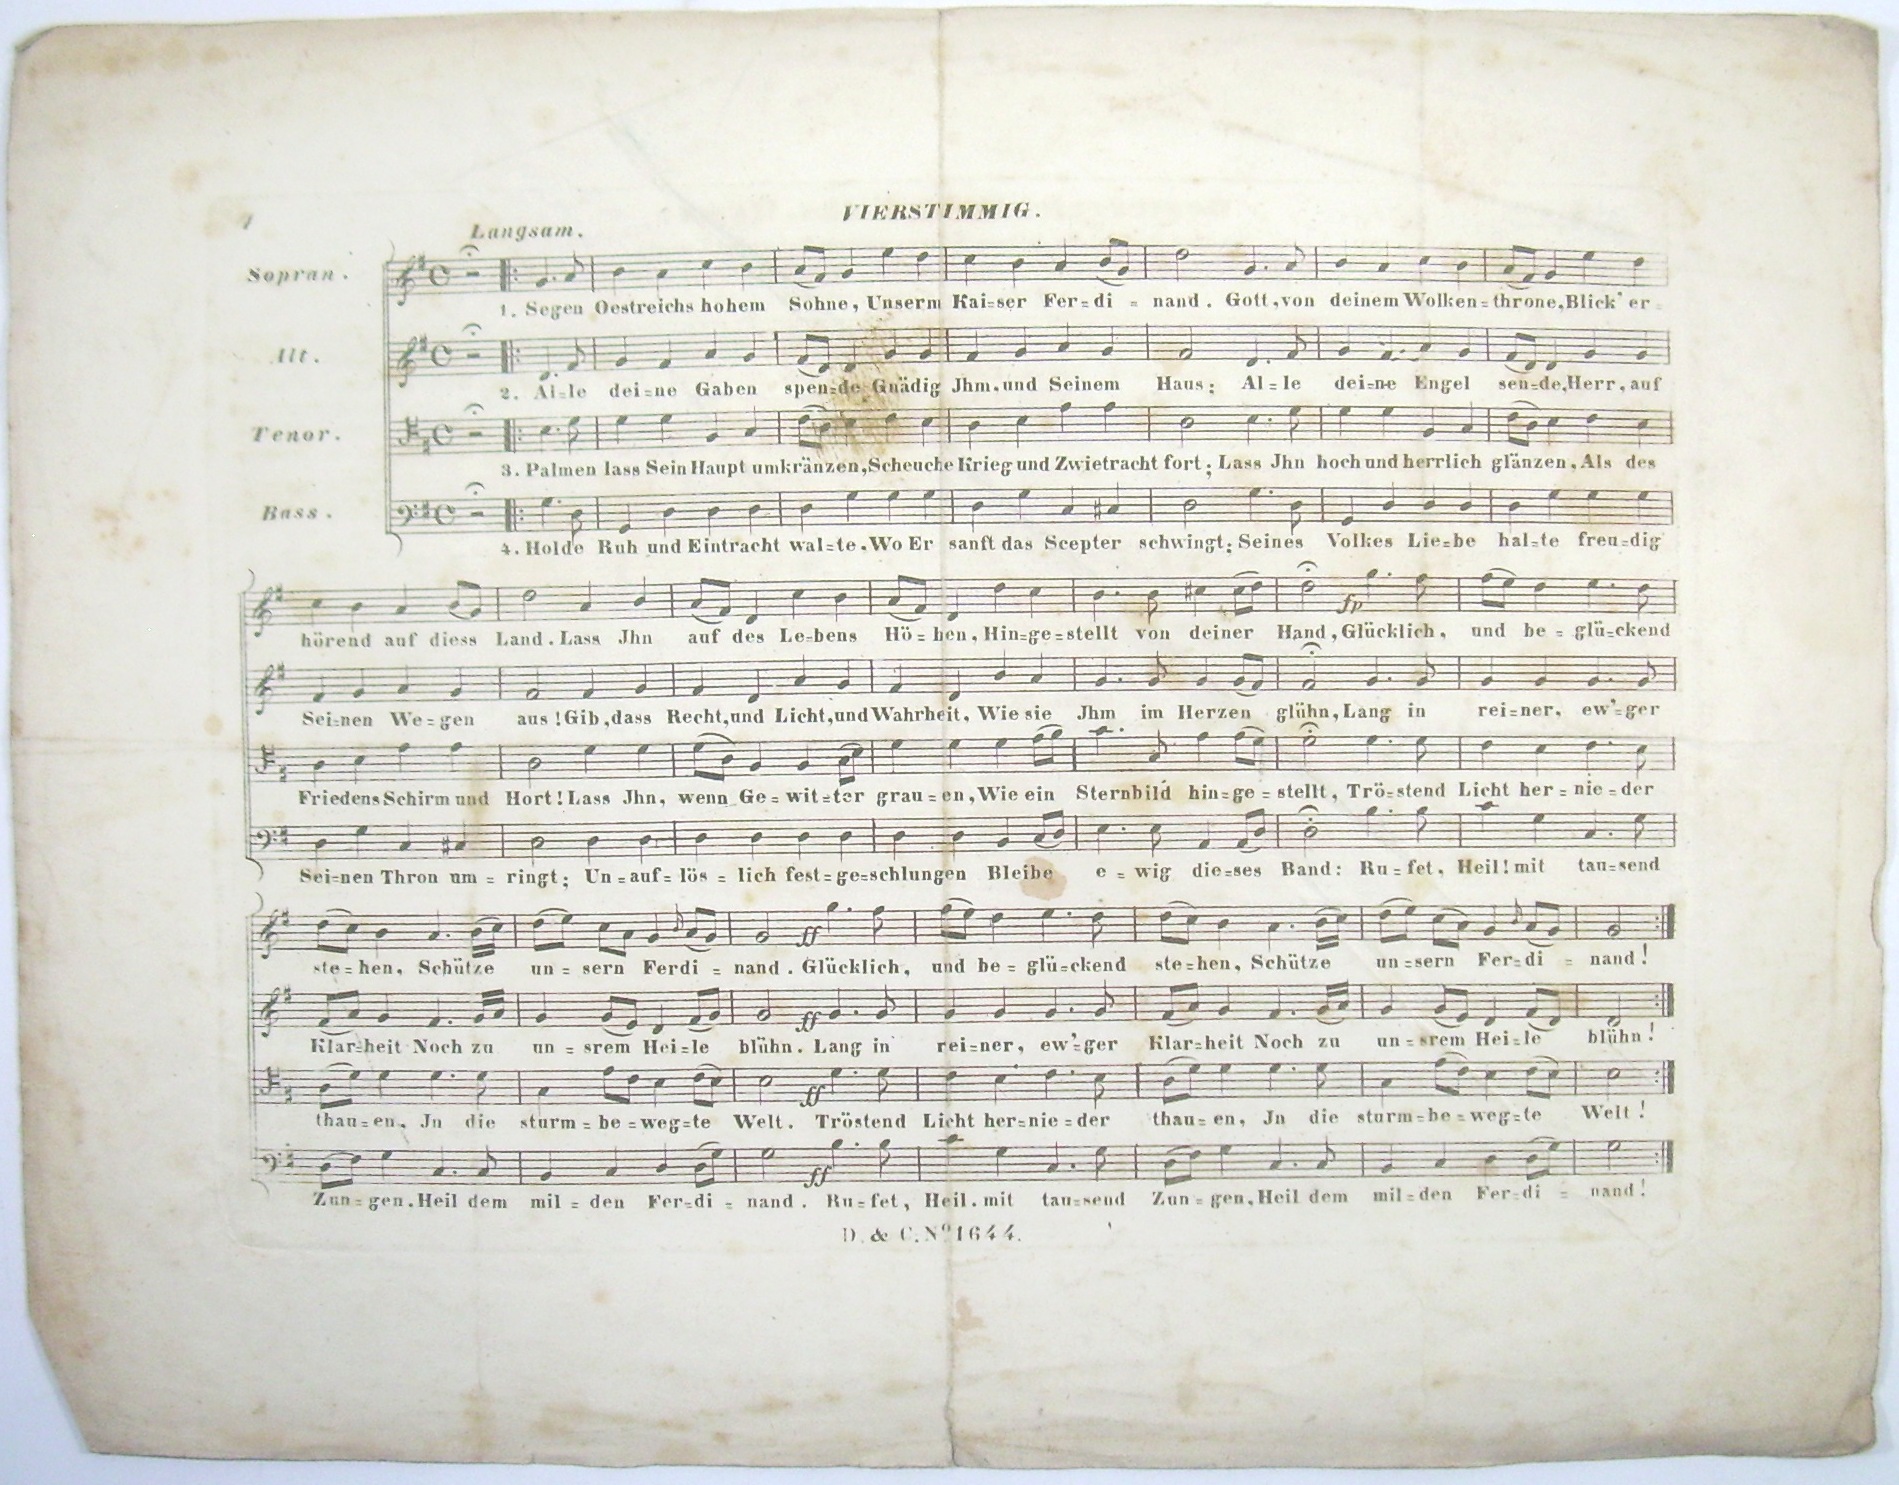 4
VIERSTIMMIG.
Langsam.
Sopran.
1. Segen Oestreichs hohem Sohne, Unserm Kai=ser Fer=di = nand. Gott, von deinem Wolken=throne, Blick' er =
Alt.
2. Al=le dei=ne Gaben spen=de Gnädig Jhm, und Seinem Haus; Al=le dei=ne Engel sen=de, Herr, auf
Tenor.
3. Palmen lass Sein Haupt umkränzen, Scheuche Krieg und Zwietracht fort; Lass Jhn hoch und herrlich glänzen, Als des
Bass.
4. Holde Ruh und Eintracht wal=te, Wo Er sanft das Scepter schwingt; Seines Volkes Lie=be hal=te freu=dig
hörend auf diess Land. Lass Jhn auf des Le=bens Hö=hen, Hin=ge=stellt von deiner Hand, Glücklich, und be = glü=ckend
fp
Sei=nen We=gen aus! Gib, dass Recht, und Licht, und Wahrheit, Wie sie Jhm im Herzen glühn, Lang in rei=ner, ew'=ger
Friedens Schirm und Hort! Lass Jhn, wenn Ge=wit=ter grau=en, Wie ein Sternbild hin=ge=stellt, Trö=stend Licht her=nie=der
Sei=nen Thron um = ringt; Un=auf=lös = lich fest=ge=schlungen Bleibe e = wig die=ses Band: Ru=fet, Heil! mit tau=send
ff
ste=hen, Schütze un = sern Ferdi = nand. Glücklich, und be = glü=ckend ste=hen, Schütze un=sern Fer=di = nand!
ff
Klar=heit Noch zu un = srem Hei=le blühn. Lang in rei=ner, ew'=ger Klar=heit Noch zu un=srem Hei=le blühn!
ff
thau=en, Jn die sturm=be=weg=te Welt. Tröstend Licht her=nie=der thau=en, Jn die sturm=be=weg=te Welt!
ff
Zun=gen, Heil dem mil = den Fer=di = nand. Ru=fet, Heil, mit tau=send Zun=gen, Heil dem mil=den Fer=di = nand!
D. & C. Nº 1644.